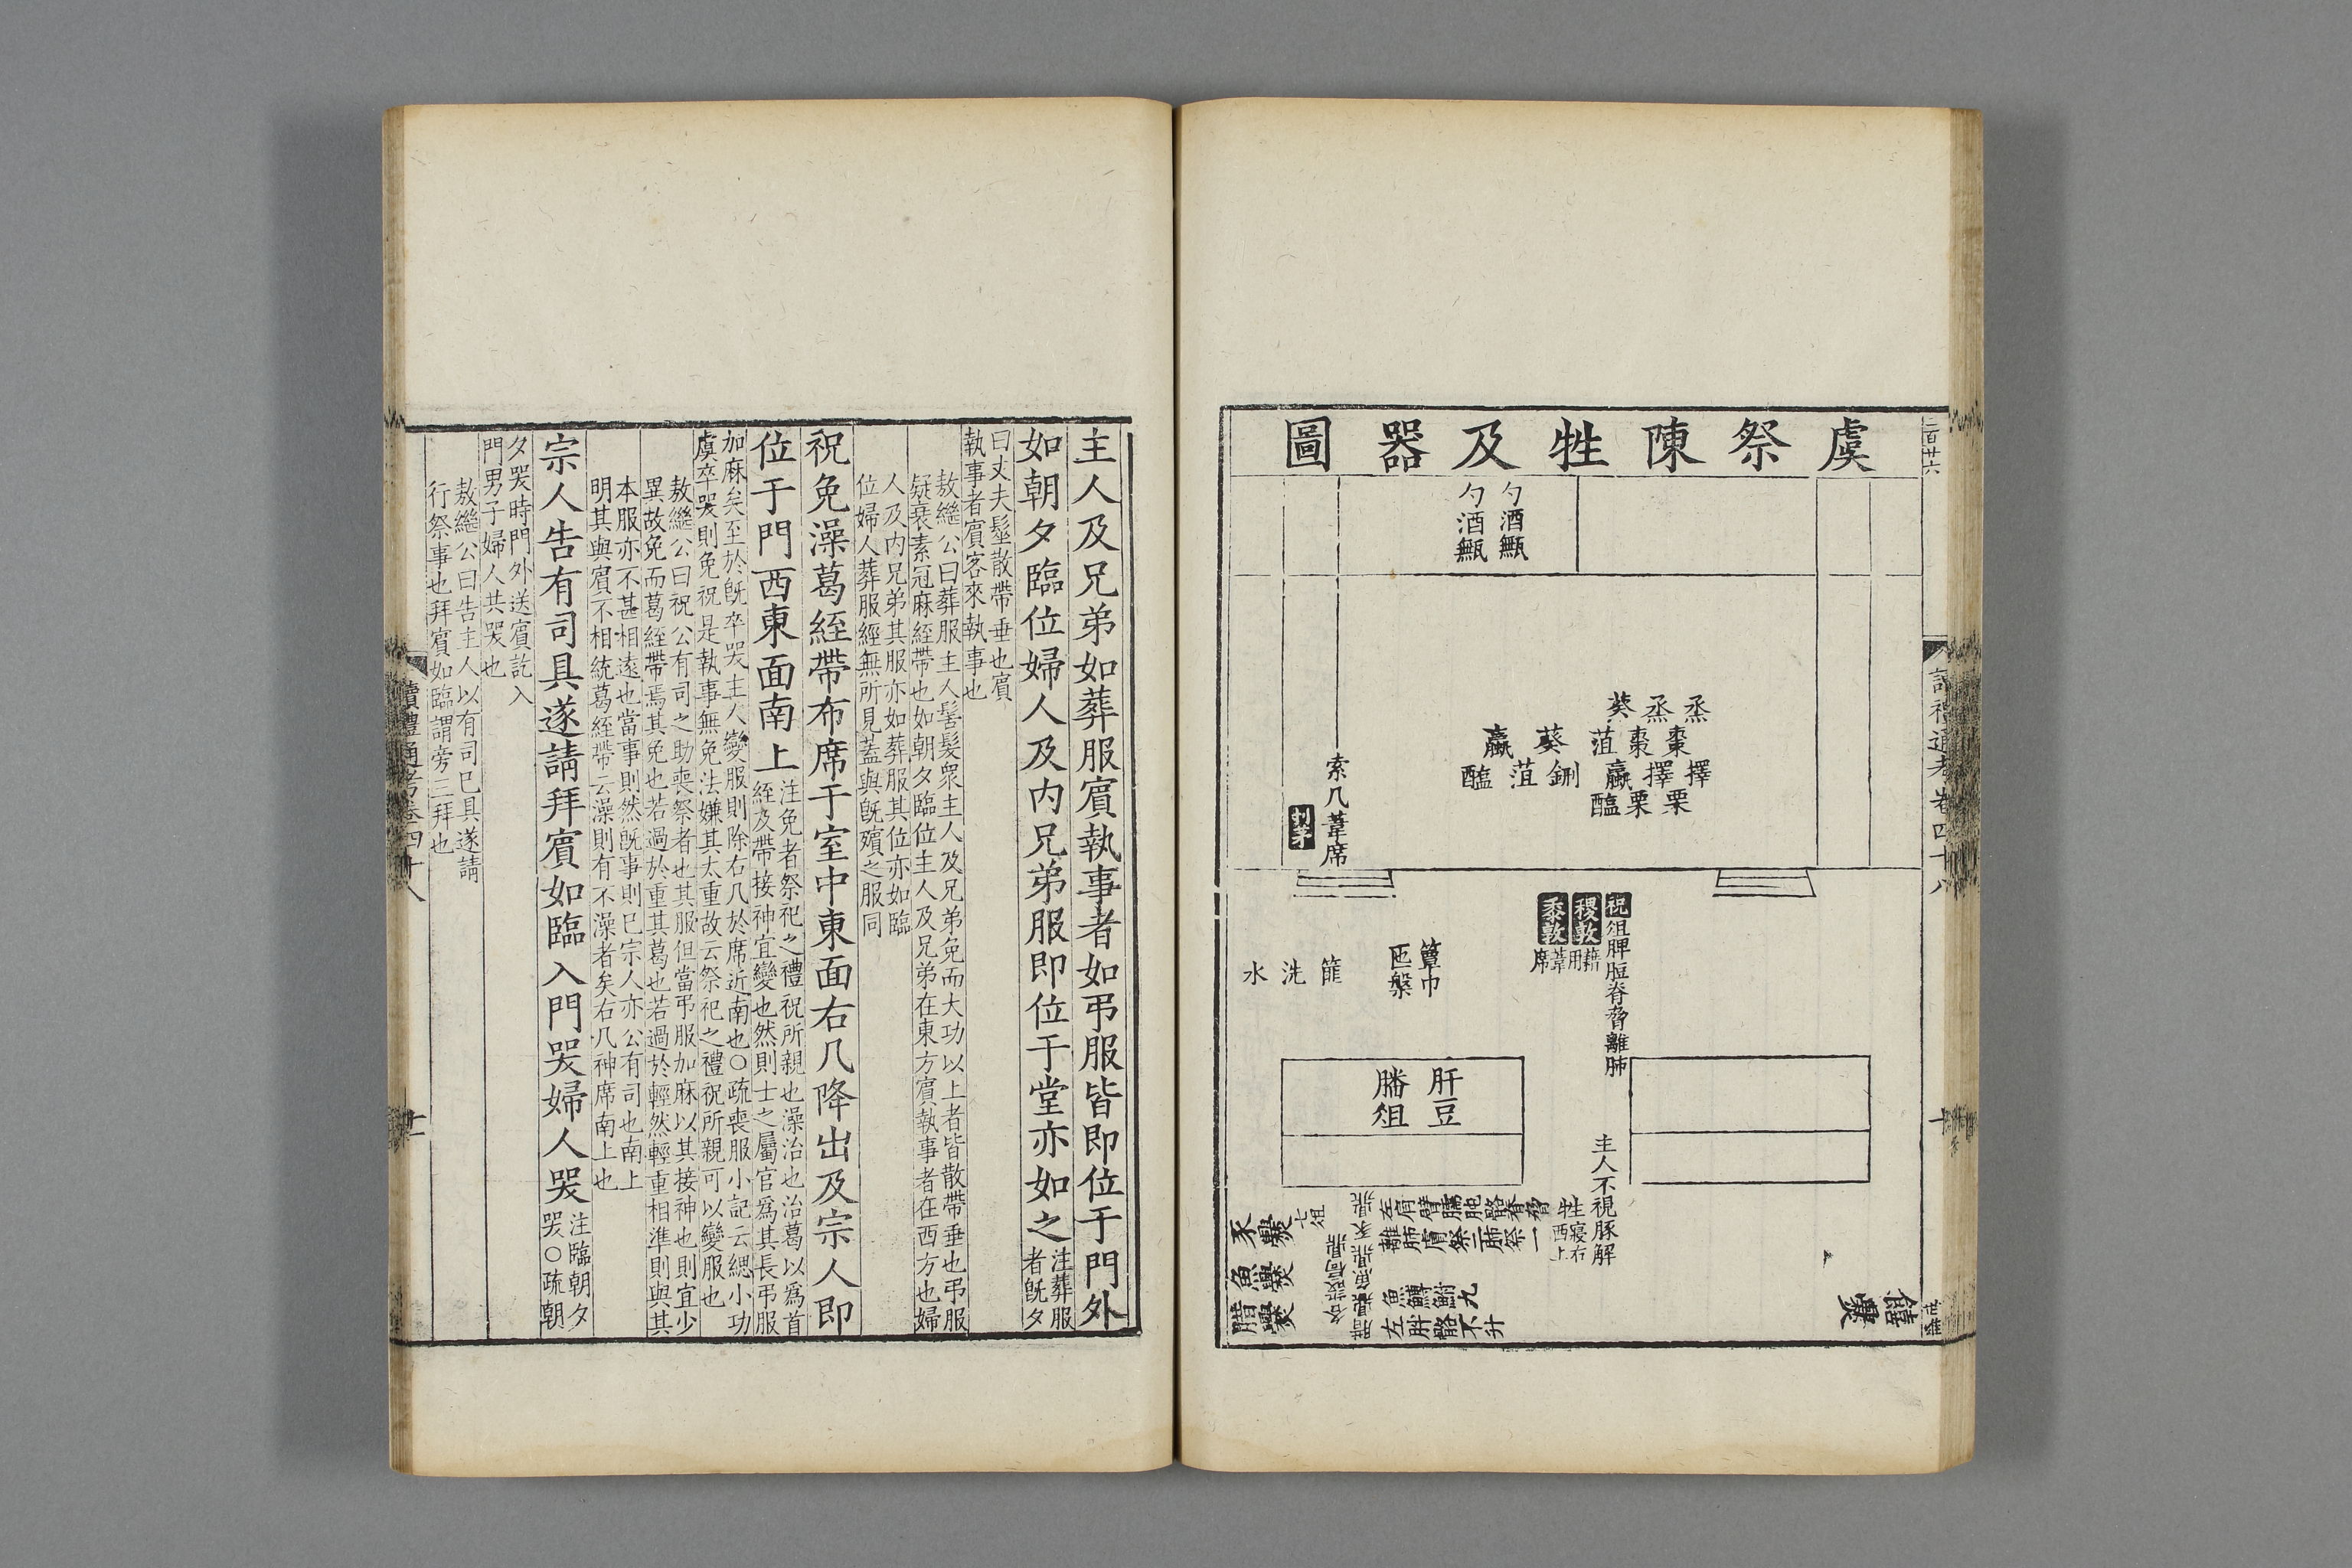 虞祭陳牲及器圖
二百廿六
勺酒甒
勺酒甒
烝棗擇栗
烝棗擇栗
葵菹蠃醢
鉶
葵菹
蠃醢
索几葦席
刌茅
祝俎脾脰脊脅離肺
稷敦
黍敦
藉用葦席
簞巾
匜槃
篚
洗
水
肝豆
膰俎
主人不視豚解
牲寢右
西上
左肩臂臑肫骼脊脅
離肺膚祭三肺祭一
魚鱄鮒九
左胖髀不升
七俎
豕爨
魚爨
腊爨
饎爨
讀禮通考卷四十八
十
主人及兄弟如葬服賓執事者如弔服皆即位于門外
如朝夕臨位婦人及內兄弟服即位于堂亦如之注葬服
者旣夕
曰丈夫髽散帶垂也賓
執事者賓客來執事也
敖繼公曰葬服主人髺髮衆主人及兄弟免而大功以上者皆散帶垂也弔服
疑衰素冠麻絰帶也如朝夕臨位主人及兄弟在東方賓執事者在西方也婦
人及內兄弟其服亦如葬服其位亦如臨
位婦人葬服經無所見蓋與旣殯之服同
祝免澡葛絰帶布席于室中東面右几降出及宗人即
位于門西東面南上注免者祭祀之禮祝所親也澡治也治葛以爲首
絰及帶接神宜變也然則士之屬官爲其長弔服
加麻矣至於旣卒哭主人變服則除右几於席近南也○疏喪服小記云緦小功
虞卒哭則免祝是執事無免法嫌其太重故云祭祀之禮祝所親可以變服也
敖繼公曰祝公有司之助喪祭者也其服但當弔服加麻以其接神也則宜少
異故免而葛絰帶焉其免也若過於重其葛也若過於輕然輕重相準則與其
本服亦不甚相遠也當事則然旣事則已宗人亦公有司也南上
明其與賓不相統葛絰帶云澡則有不澡者矣右几神席南上也
宗人告有司具遂請拜賓如臨入門哭婦人哭注臨朝夕
哭○疏朝
夕哭時門外送賓訖入
門男子婦人共哭也
敖繼公曰告主人以有司已具遂請
行祭事也拜賓如臨謂旁三拜也
讀禮通考卷四十八